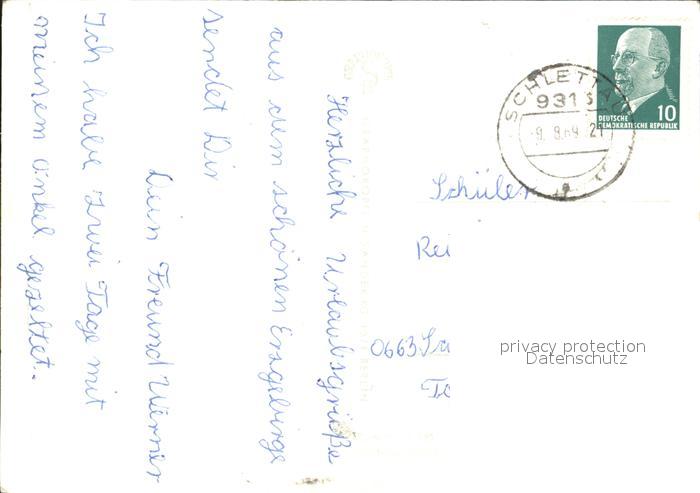 Herzliche Urlaubsgrüße
aus dem schönen Erzgebirge
sendet Dir
Dein Freund Werner
Ich habe zwei Tage mit
meinem Onkel gezeltet.
SCHLETTAU
931
-9. 8.69 21
DEUTSCHE
DEMOKRATISCHE REPUBLIK
10
Schüler
Rei
0663
privacy protection
Datenschutz